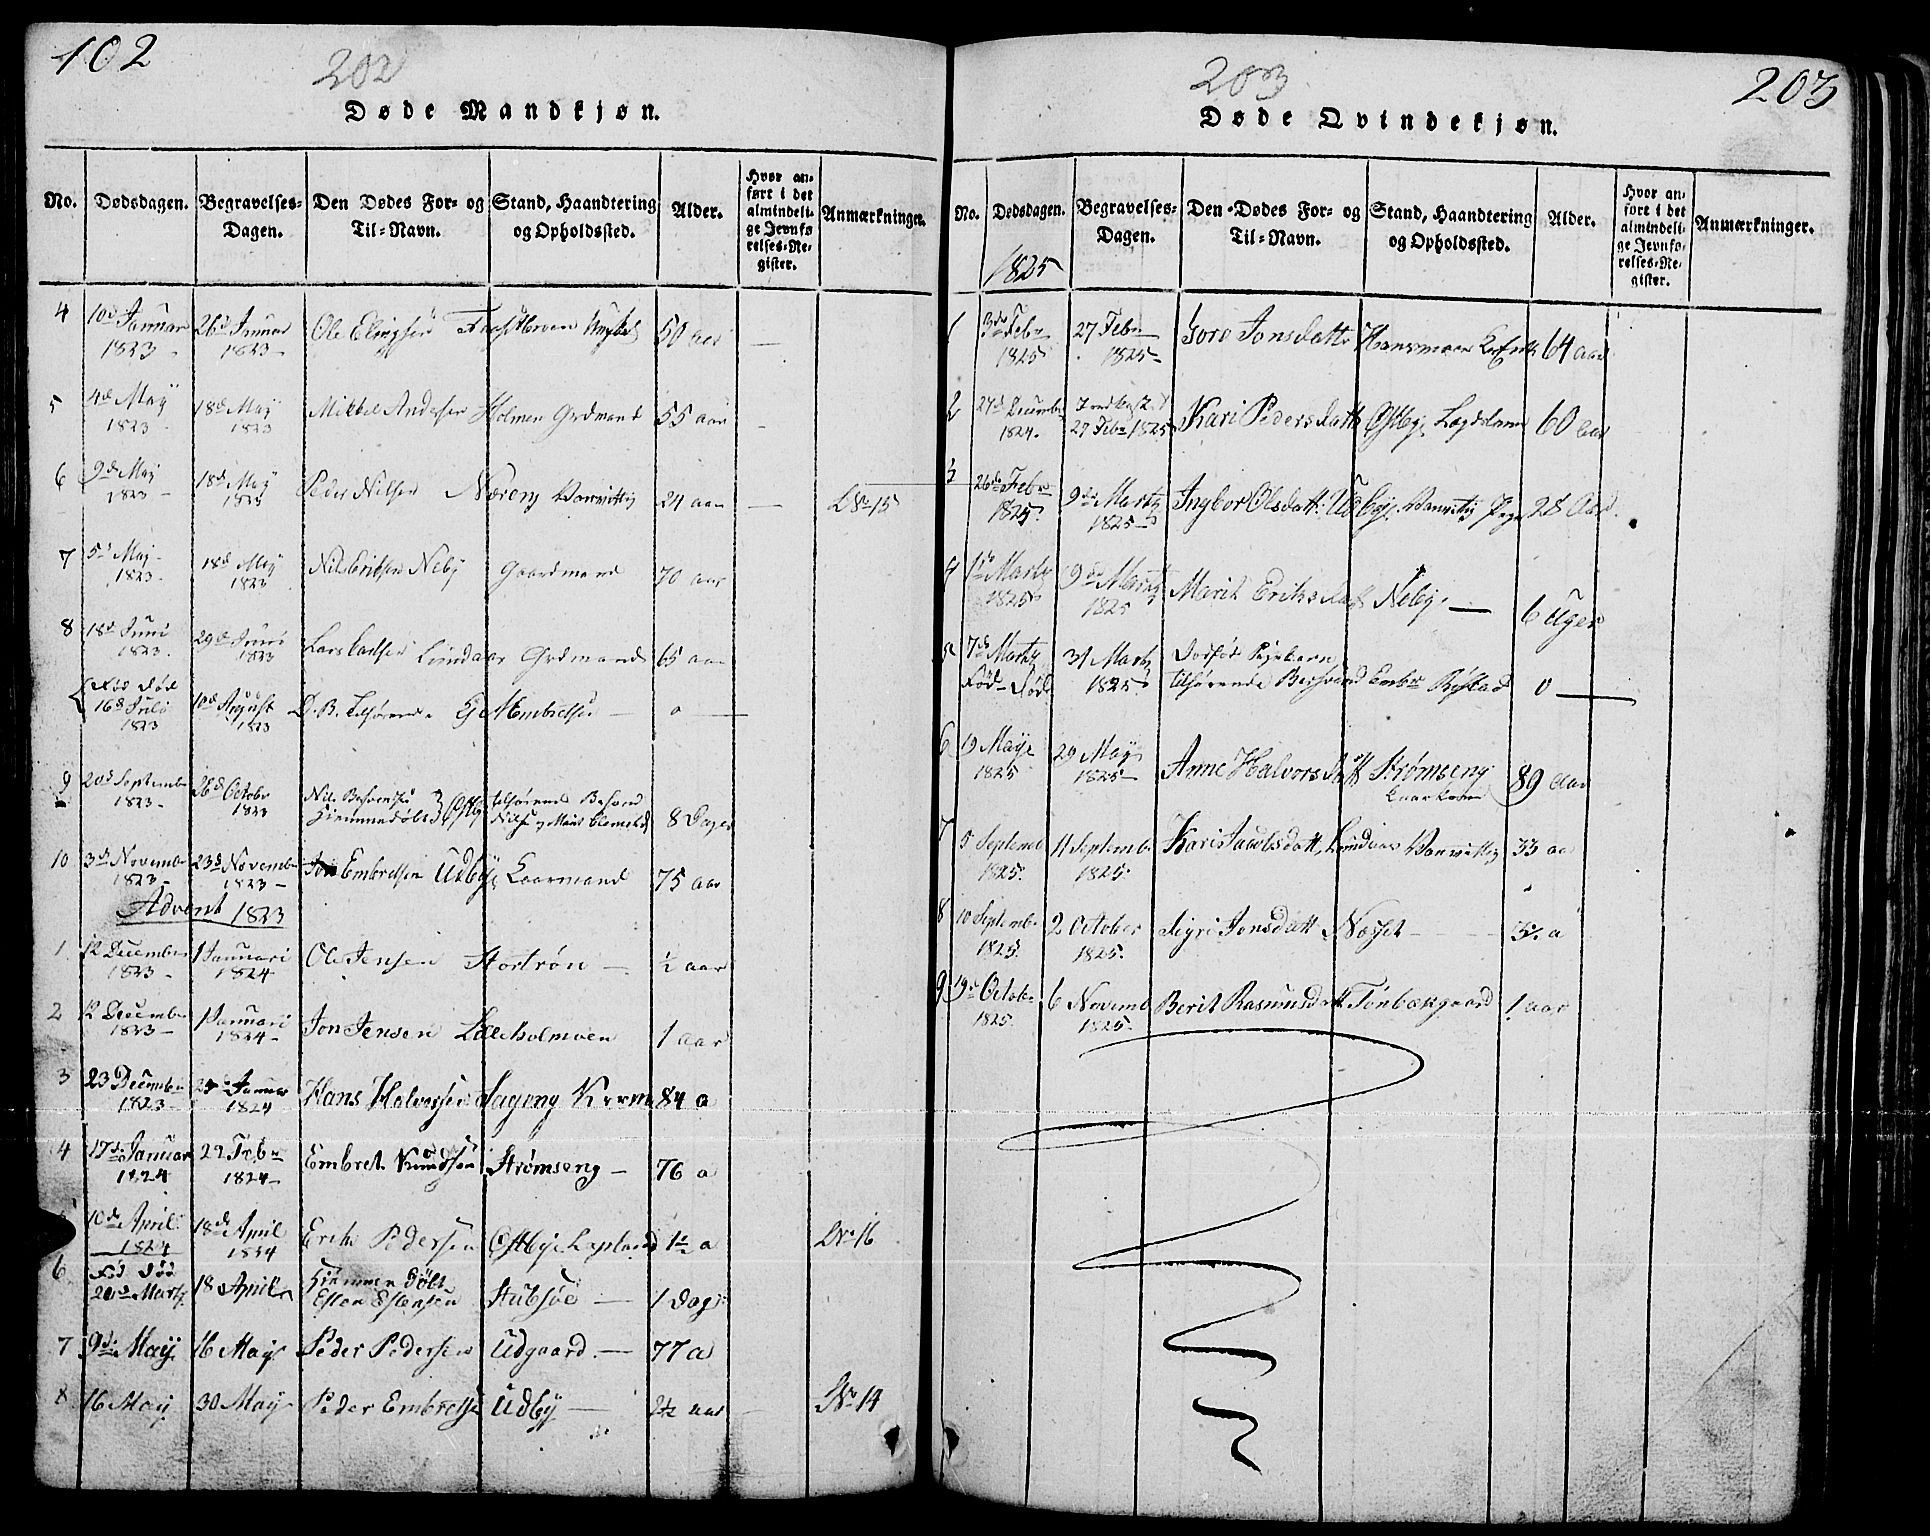 102
202
Døde Mandkjøn.
No. Dødsdagen. Begravelses-Dagen. Den Dødes For- og Til-Navn. Stand, Haandtering og Opholdssted. Alder. Hvor anført i det almindelige Jevnførelses-Register. Anmærkninger.
4 10d Januar 1823 26d Januar 1823 Ole Elingsen 50 aar
5 4d May 1823 18d May 1823 Mikkel Andersen Holmen Grdmand 55 aar
6 9d May 1823 18d May 1823 Peder Nilsen Næreng Vanvittig 24 aar No 15
7 5d May 1823 18d May 1823 Nils Eriksen Neby Gaardmand 70 aar
8 18d Juni 1823 29d Juni 1823 Lars Carlsen Lundaar Grdmand 65 aar
Fød Død 16d Juli 1823 10d August 1823 D. B. tilhørende Embretsen 0
9 20d September 1823 26d October 1823 Hjemmedøbt Østby tilhørende 8 Dage
10 3d November 1823 23d November 1823 Jon Embretsen Udbye Laarmand 75 aar
Advent 1823
1 12 December 1823 1 Januari 1824 Ole Jensen Stortrøn ½ aar
2 12 December 1823 1 Januari 1824 Jon Jensen Lilleholmoen 1 aar
3 23 December 1823 Januar 1824 Hans Halvorsen Sageng 84 a
4 17d Januar 1824 22 Febr 1824 Embret Knudsen Strømseng 76 a
10d April 1824 18d April 1824 Erik Pedersen Østbye 1½ a No 16
6 Fød Død 20d Marts 18 April Hjemmedøbt Esten Estensen Stubsøe 1 Dag
7 9d May 16 May Peder Pedersen Udgaard 77 a
8 16 May 30 May Peder Embretsen Udby 2½ aar No 14
203
203
Døde Qvindekjøn.
No. Dødsdagen. Begravelses-Dagen. Den Dødes For- og Til-Navn. Stand, Haandtering og Opholdssted. Alder. Hvor anført i det almindelige Jevnførelses-Register. Anmærkninger.
1825
1 3de Febr 1825 27 Febr 1825 Goro Jonsdatt Hansmoen 64 aar
2 27d December 1824 27 Febr 1825 Kari Pedersdatt Østbye 60 aar
3 26de Febr 1825 9de Marts 1825 Ingbor Olsdatt Udbye Vanvittig Pige 28 Aar
4 1de Marts 1825 9de Marts 1825 Marit Eriksdatt Neby 6 Uger
5 7d Marts Fød Død 31 Marts 1825 Dødfød Pigebarn tilhørende Embr 0
6 19 Maye 1825 29 May 1825 Anne Halvorsdatt Strømseng Laarkone 89 aar
7 5 Septemb 1825 11 Septemb 1825 Kari Jacobsdatt Lundaar Vanvittig 33 aa
8 10 Septemb 1825 2 October 1825 Sigri Jonsdatt
9 19d Octob 1825 6 Novemb 1825 Berit Rasmusdatt Tønbækgaard 1 aar